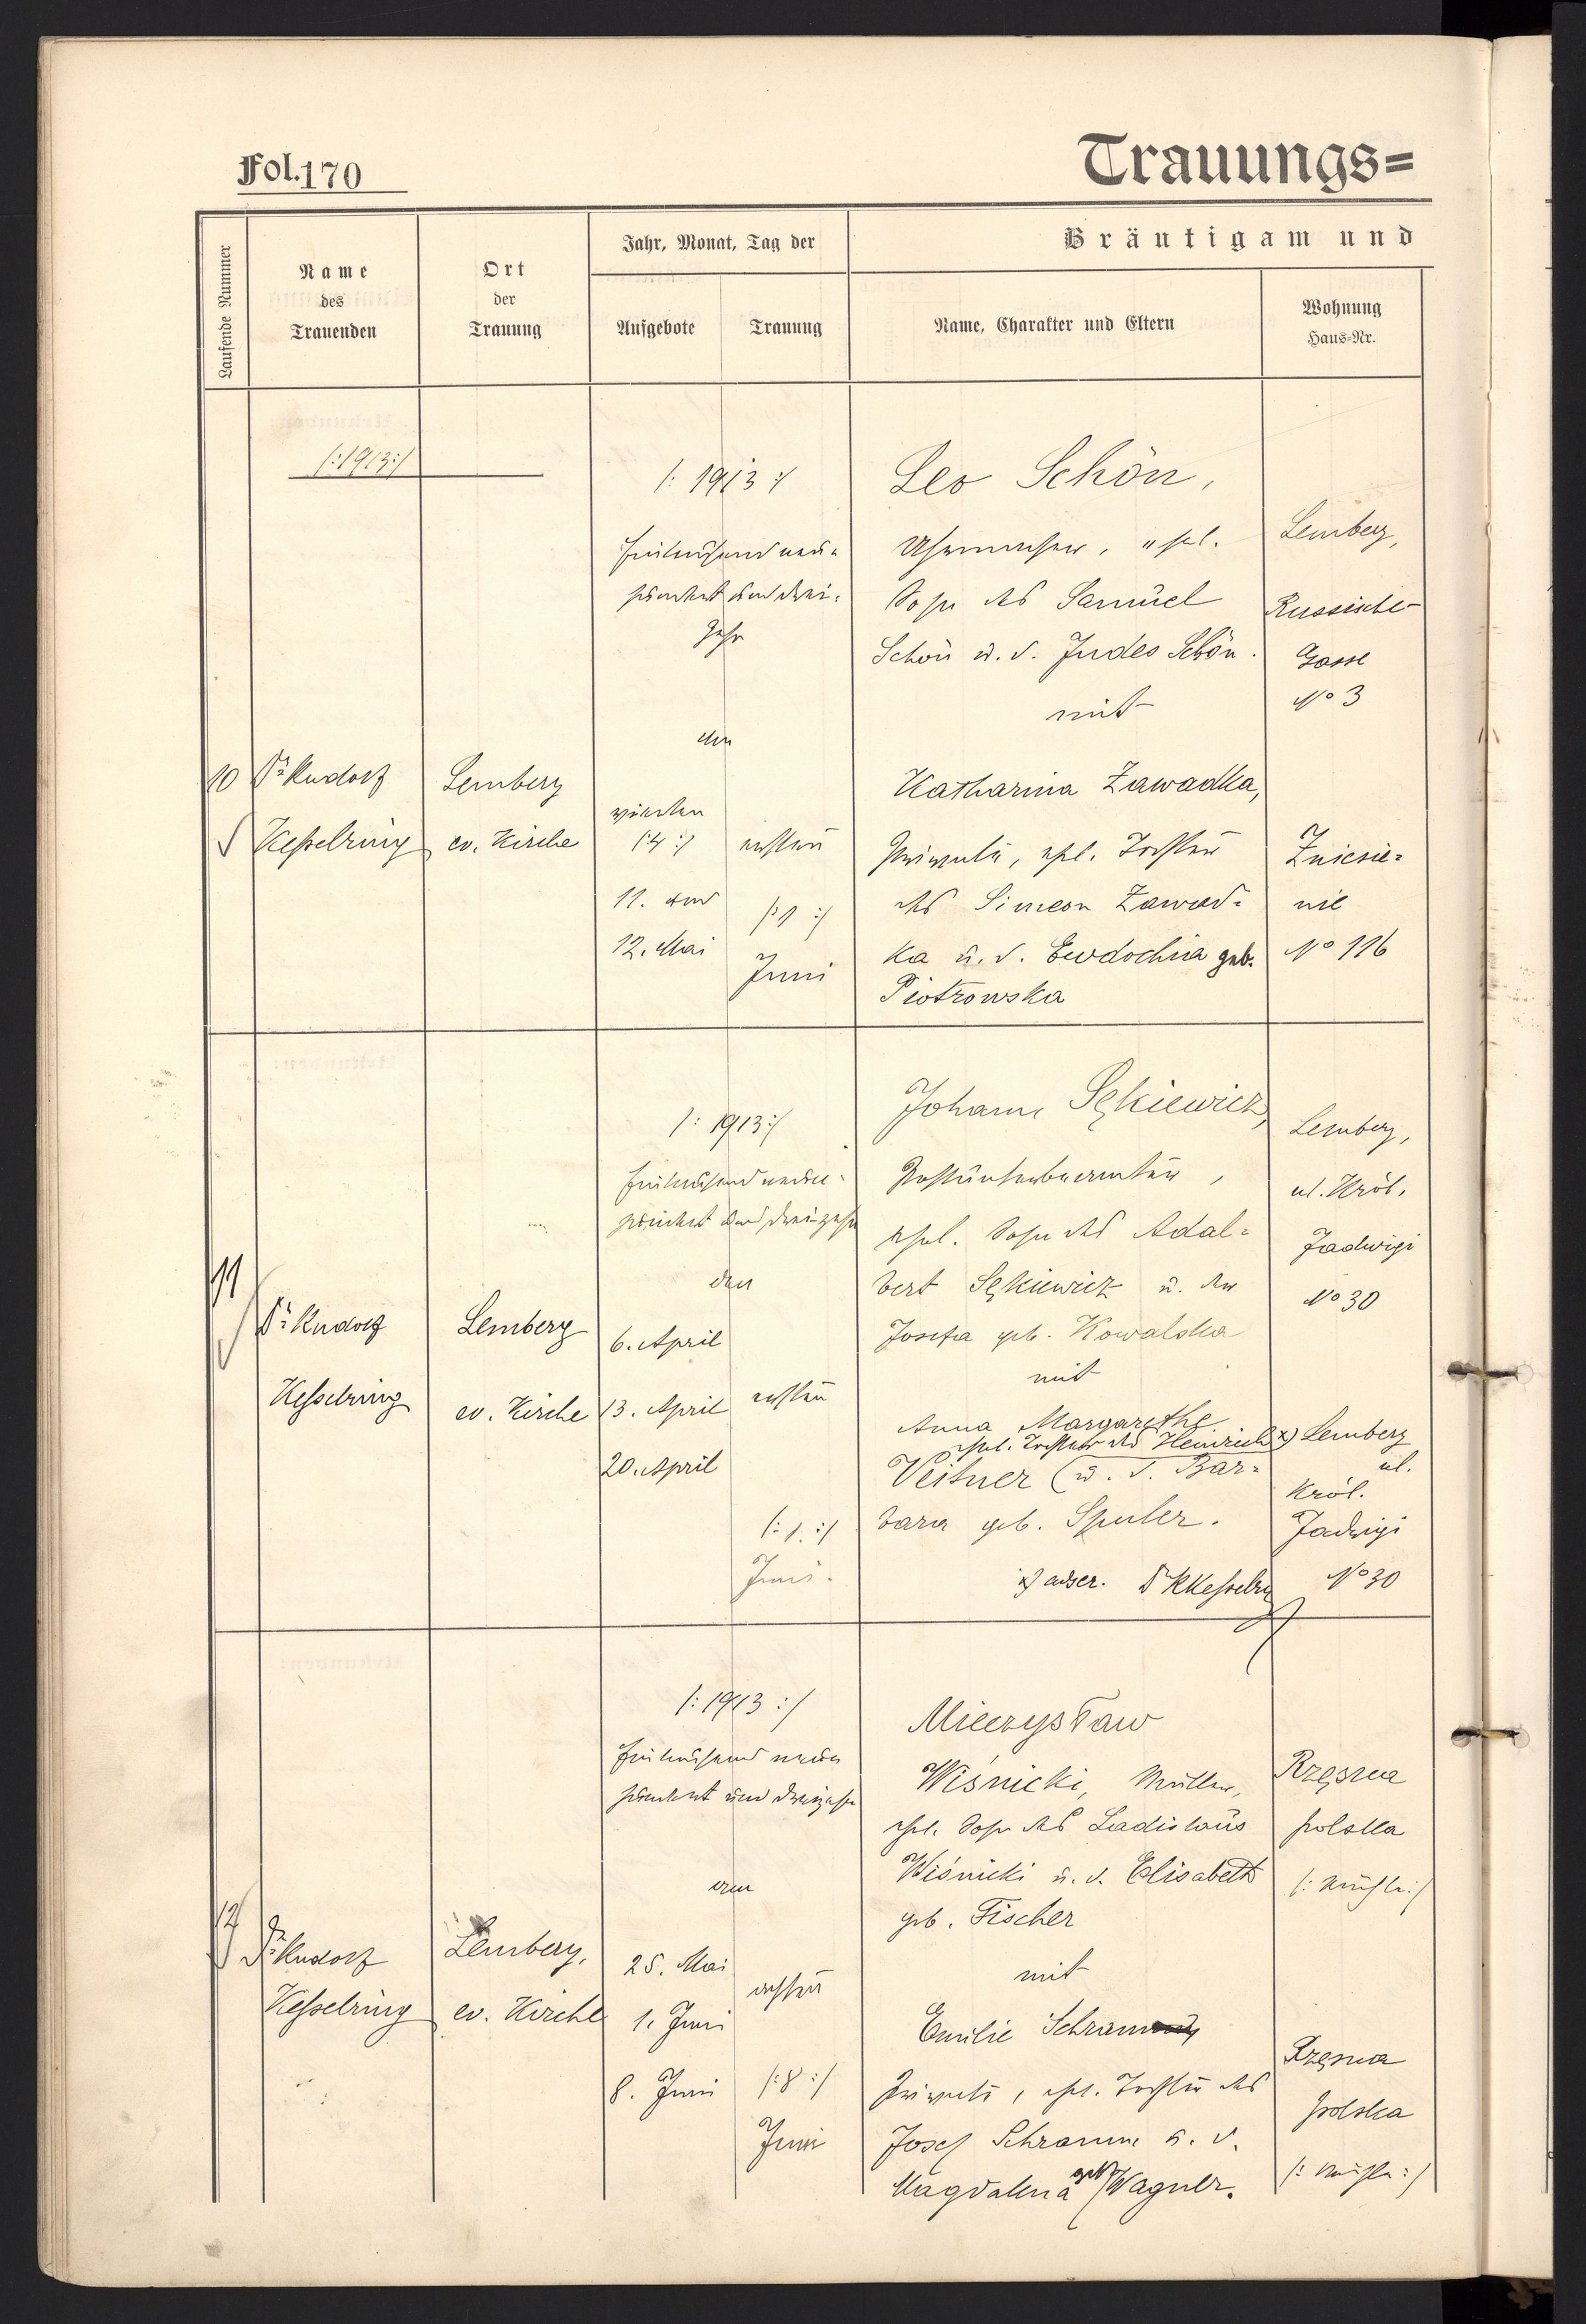 Fol. 170
Trauungs=
Laufende Nummer
Name
des
Trauenden
Ort
der
Trauung
Jahr, Monat, Tag der
Aufgebote
Trauung
Bräutigam und
Name, Charakter und Eltern
Wohnung
Haus-Nr.
/:1913:/
10
Dr. Rudolf
Kesselring
Lemberg
ev. Kirche
/: 1913 :/
Eintausend neun=
hundert und drei=
zehn
den
/:4:/
11. und
12. Mai
ersten
/:1:/
Juni
Leo Schön,
Uhrmacher, ehel.
Sohn des Samuel
Schön u. d. Judes Schön.
mit
Katharina Zawadka,
Private, ehel. Tochter
des Simeon Zawad=
ka u. d. Ewdochia geb.
Piotrowska
Lemberg,
Russische-
Gasse
No 3
Zniesie=
nie
No 116
11
Dr. Rudolf
Kesselring
Lemberg
ev. Kirche
/: 1913:/
Eintausend neun=
hundert und dreizehn
den
6. April
13. April
20. April
ersten
/:1.:/
Juni.
Johann Sękiewicz,
Postunterbeamter,
ehel. Sohn des Adal=
bert Sękiewicz u. der
Josefa geb. Kowalska
mit
Anna Margarethe
ehel. Tochter des Heinrich x)
Veitner (u. d. Bar=
bara geb. Spuler.
x) adscr. Dr KKesselring
Lemberg,
ul. Król.
Jadwigi
No 30
Lemberg
ul.
Król.
Jadwigi
No 30
12
Dr. Rudolf
Kesselring
Lemberg,
ev. Kirche
/: 1913 :/
Eintausend neun
hundert und dreizehn
den
25. Mai
1. Juni
8. Juni
ersten
/:8:/
Juni
Mieczysław
Wiśnicki, Müller,
ehel. Sohn des Ladislaus
Wiśnicki u. d. Elisabeth
geb. Fischer
mit
Emilie Schramm
Private, ehel. Tochter des
Josef Schramm u. d.
Magdalena geb. Wagner.
Rzęsna
polska
/: Mühle:/
Rzęsna
polska
/: Mühle:/